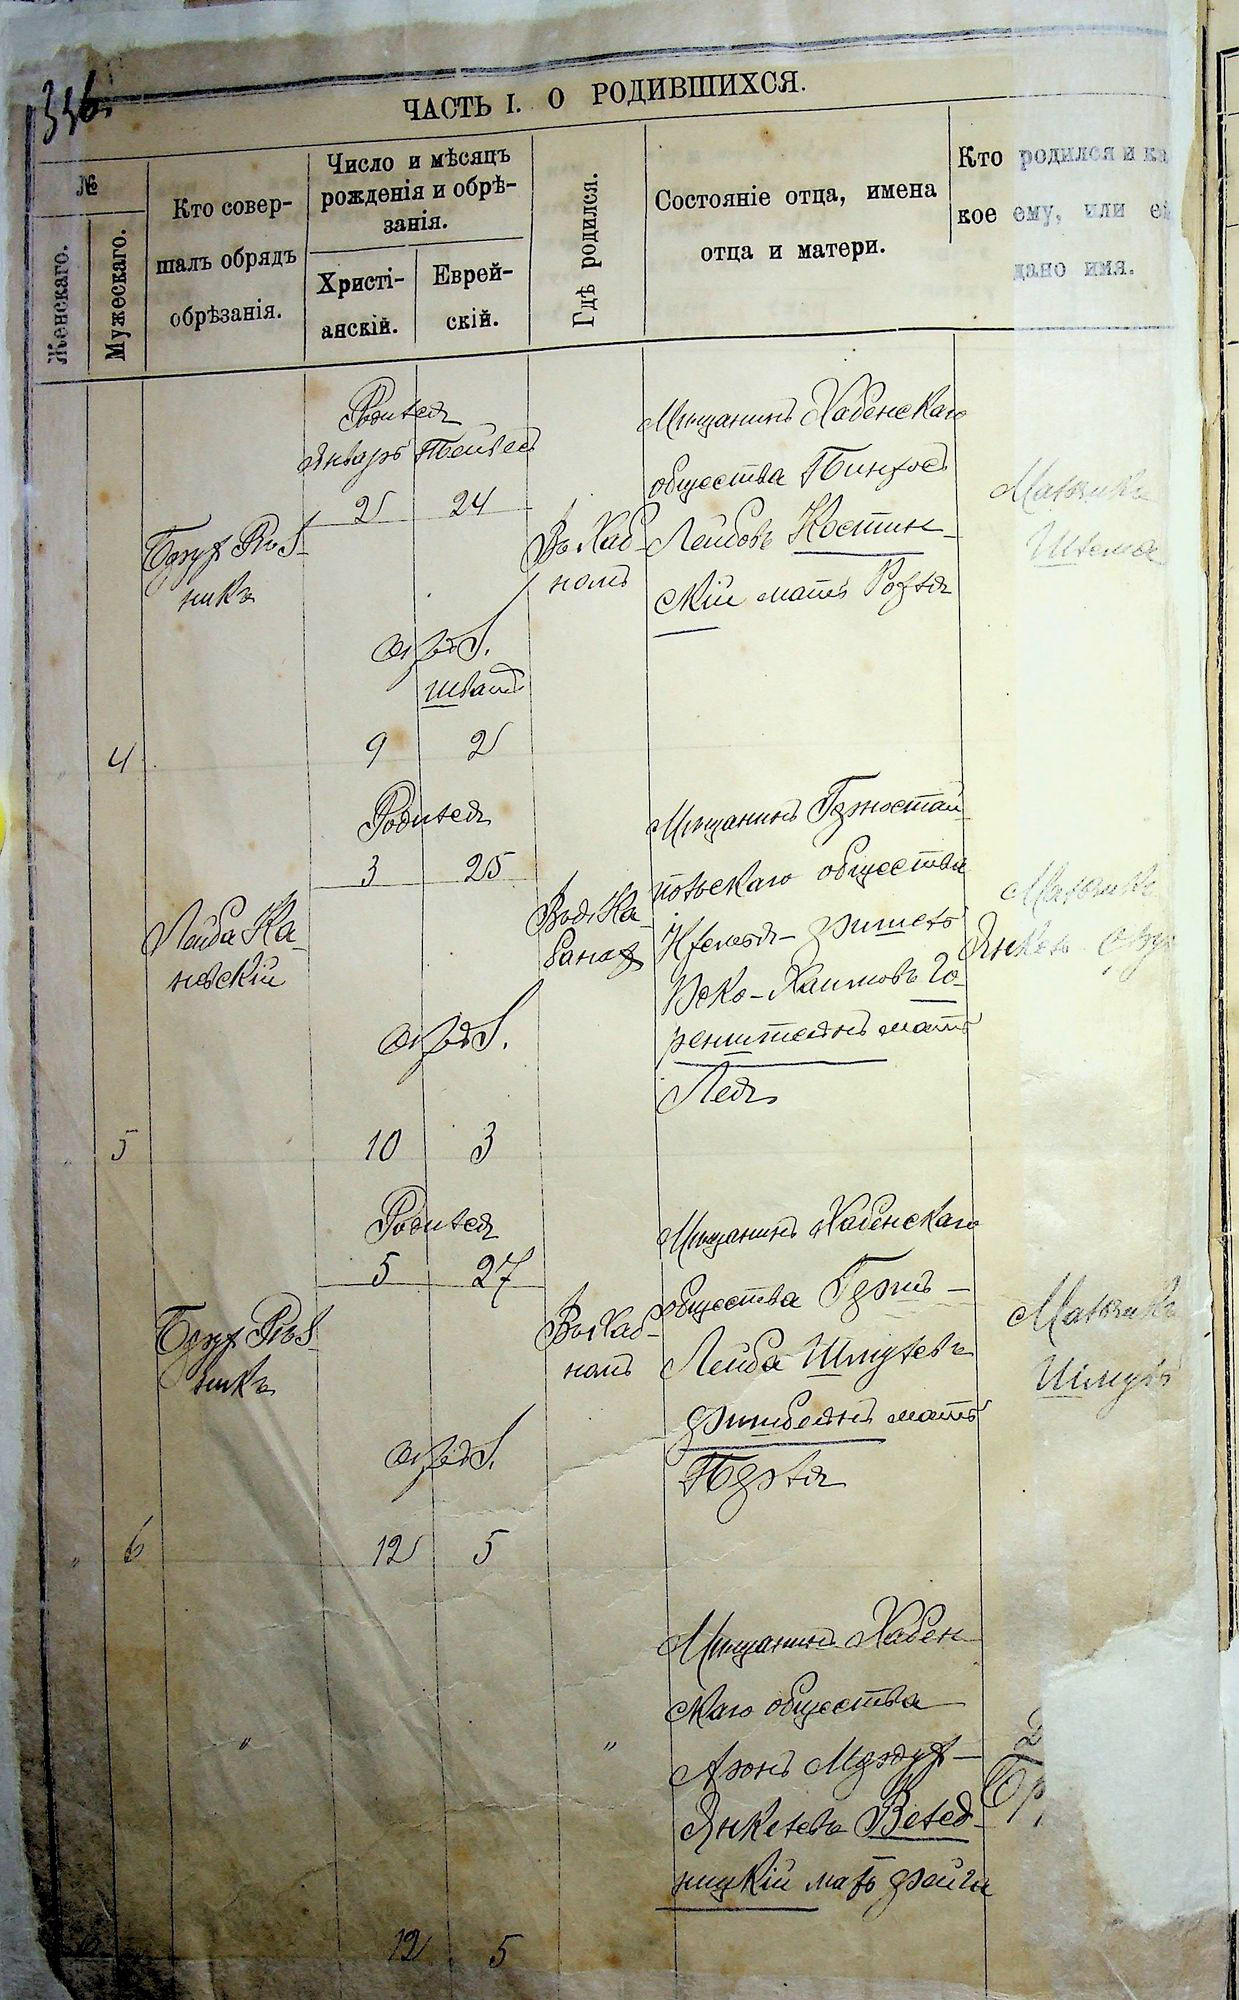 336.
ЧАСТЬ I. О РОДИВШИХСЯ.
№
Женскаго.
Мужескаго.
Кто совер-
шалъ обрядъ
обрѣзанія.
Число и мѣсяцъ
рожденія и обрѣ-
занія.
Христі-
анскій.
Еврей-
скій.
Гдѣ родился.
Состояніе отца, имена
отца и матери.
Кто родился и ка
кое ему, или ей
дано имя.
4
Родился
Январь Тейвесъ
2 24
обрѣз.
Шватъ
9 2
Въ Хаб-
номъ
Мѣщанинъ Хабенскаго
общества Пинхосъ
Лейбовъ Костин-
скій мать Рохля
Мальчикъ
5
Лейба Ка-
невскій
Родился
3 25
обрѣз.
10 3
Мѣщанинъ Горностай
польскаго общества
Іоско-Хаимовъ Го-
ренштейнъ мать
Лея
Мальчикъ
6
Родился
5 27
обрѣз.
12 5
Въ Хаб-
номъ
Мѣщанинъ Хабенскаго
общества Гершъ-
Лейба Шмулевъ
мать
Перля
Мальчикъ
Шмуль
"
"
Мѣщанинъ Хабен-
скаго общества
Аронъ Мордух-
Янкелевъ Велед-
ницкій мать Фейга
12 5